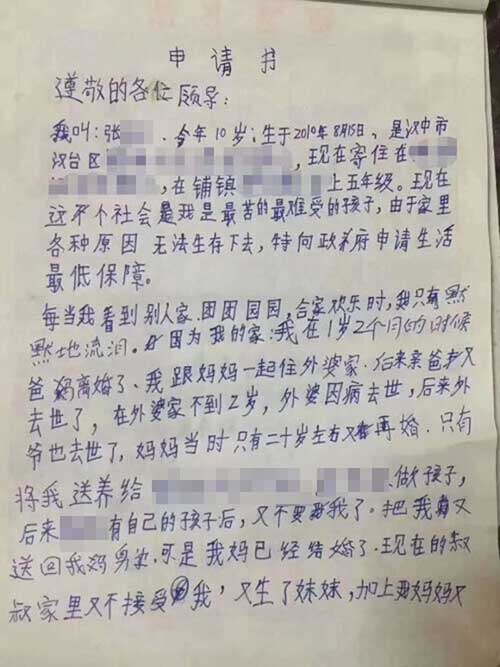 申请书
遵敬的各位领导:
我叫:张 今年10岁;生于2010年8月15日、是汉中市
汉台区 ,现在寄住在
,在铺镇 上五年级。现在
这个社会是我是最苦的最难受的孩子,由于家里
各种原因 无法生存下去,特向政府申请生活
最低保障。
每当我看到别人家.团团园园,合家欢乐时,我只有默
默地流泪。因为我的家.我在1岁2个月的时候
爸妈离婚了、我跟妈妈一起住外婆家.后来亲爸又
去世了,在外婆家不到2岁,外婆因病去世,后来外
爷也去世了,妈妈当时只有二十岁左右又再婚.只有
将我送养给 、 做孩子,
后来 有自己的孩子后,又不要我了。把我又
送回我妈男边.可是我妈已经结婚了.现在的叔
叔家里又不接受我,又生了妹妹,加上我妈妈又